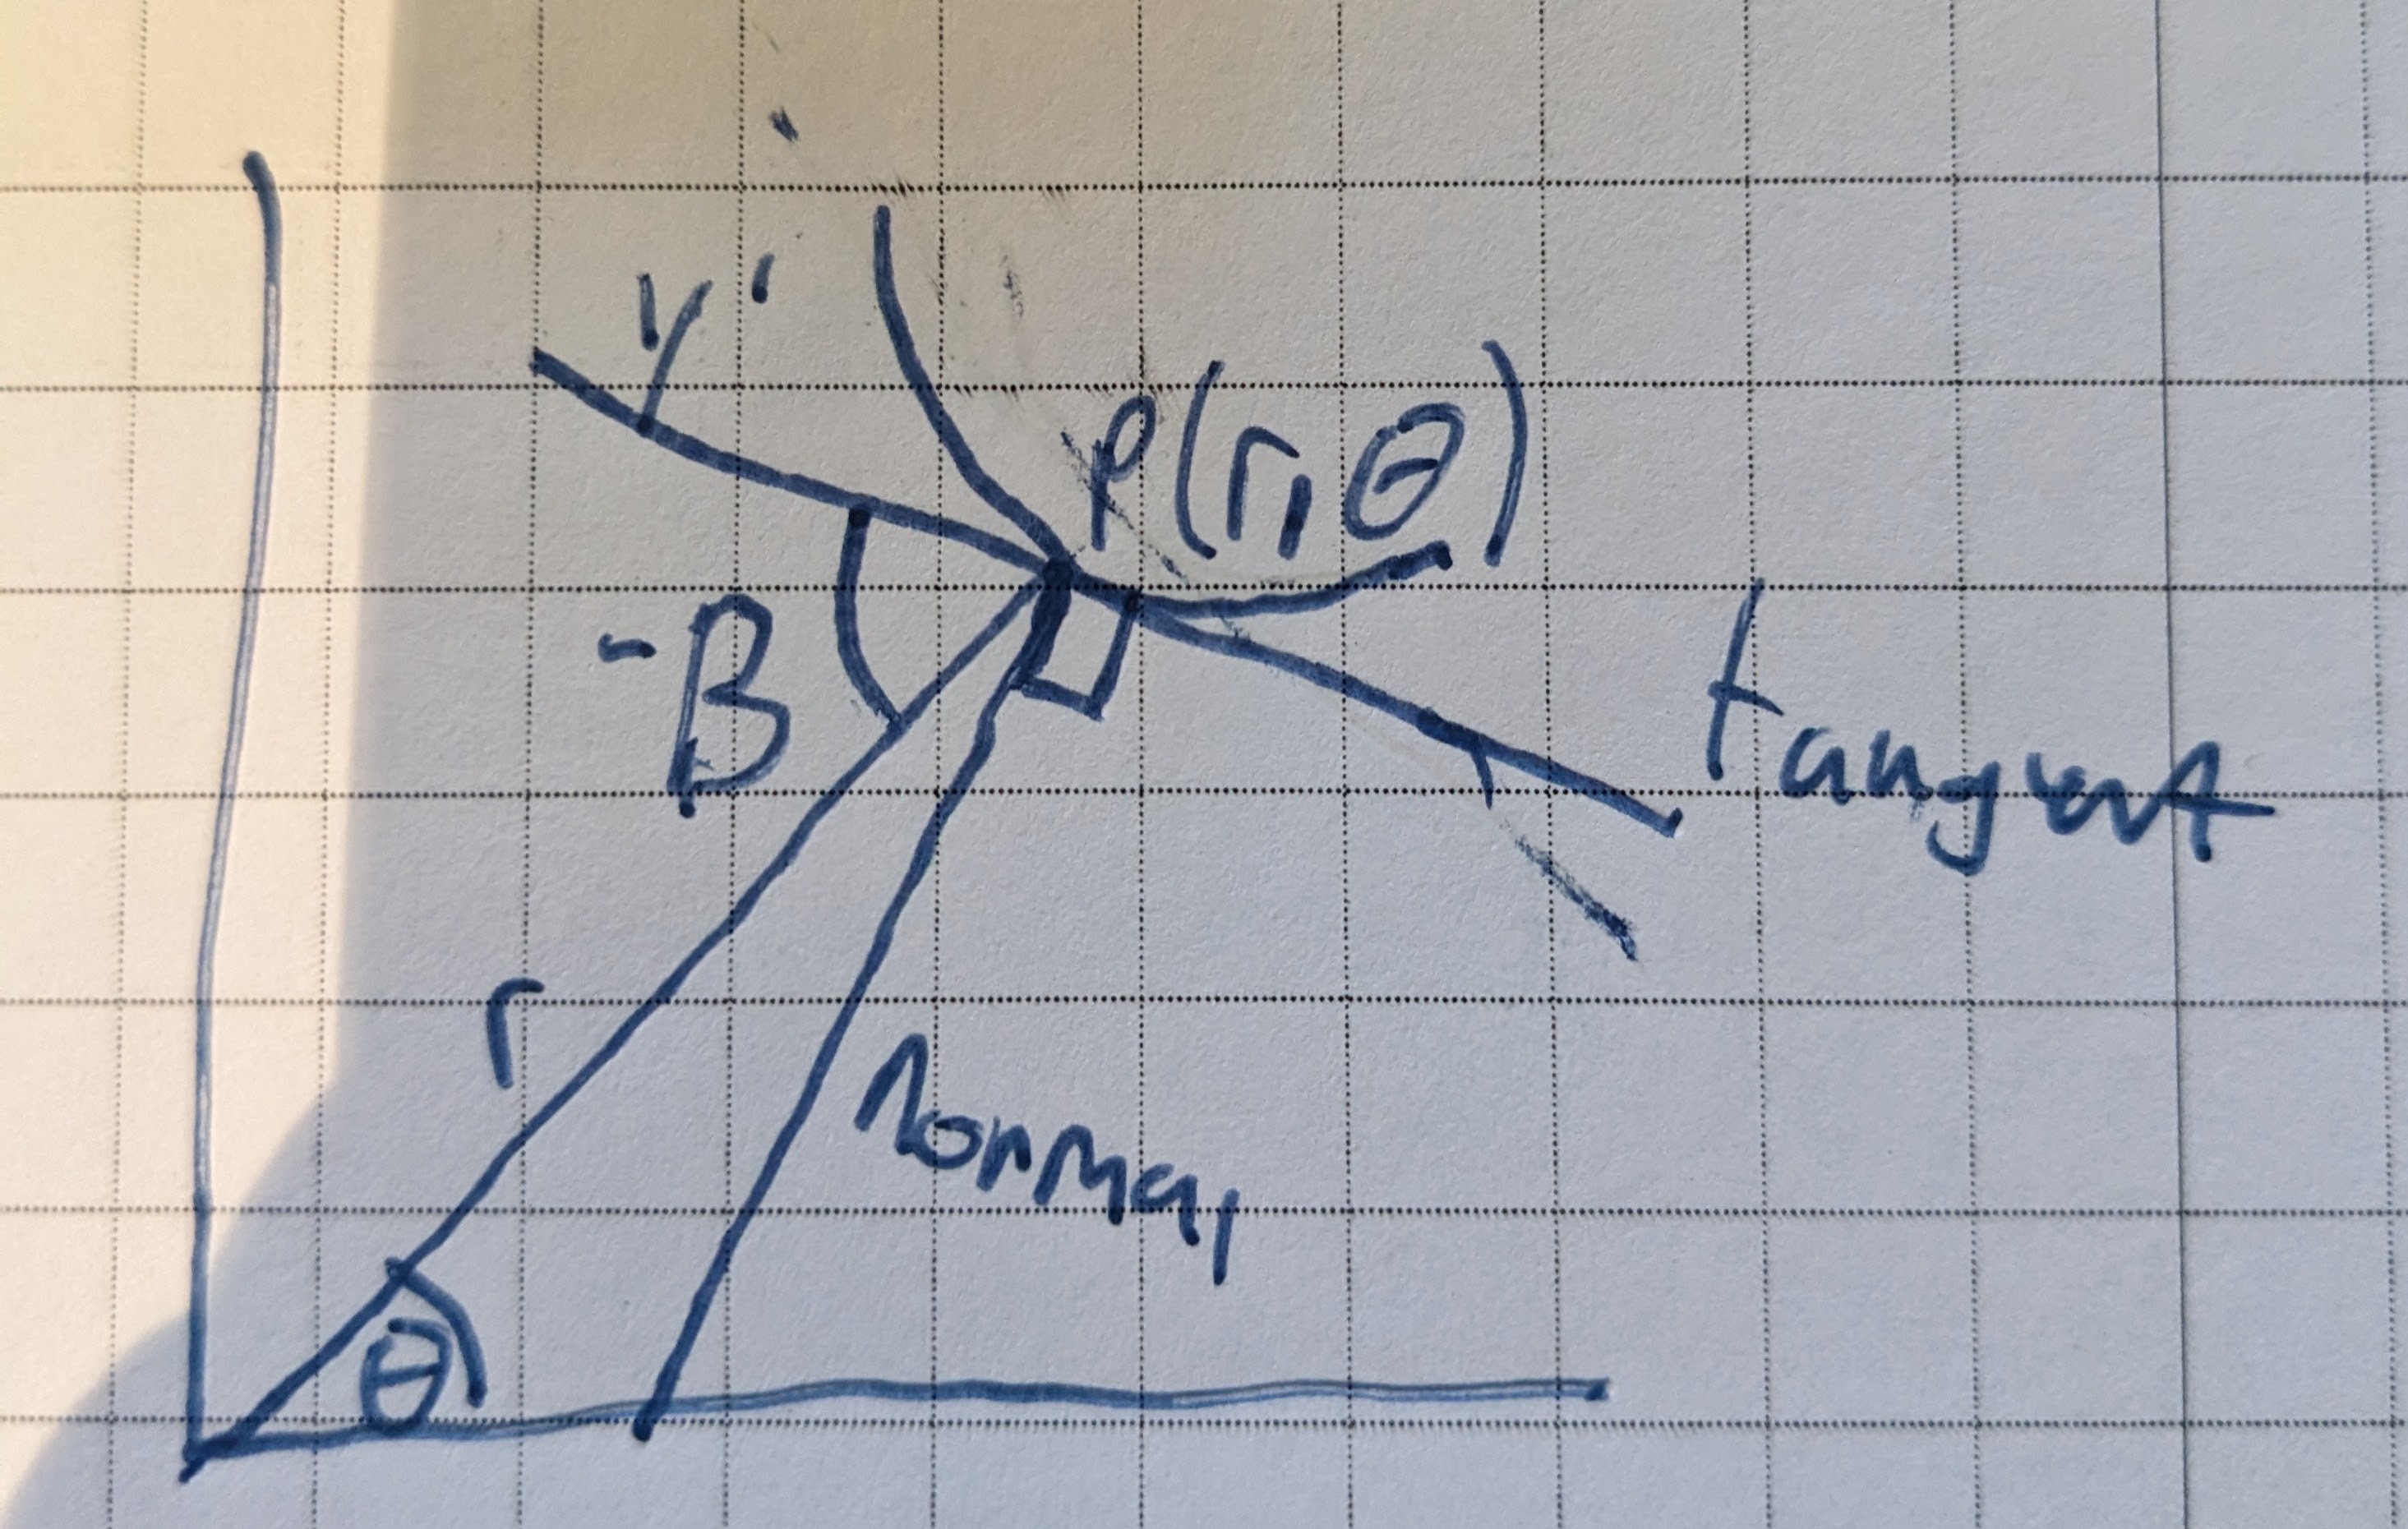 y'
P(r,θ)
-β
tangent
r
normal
θ